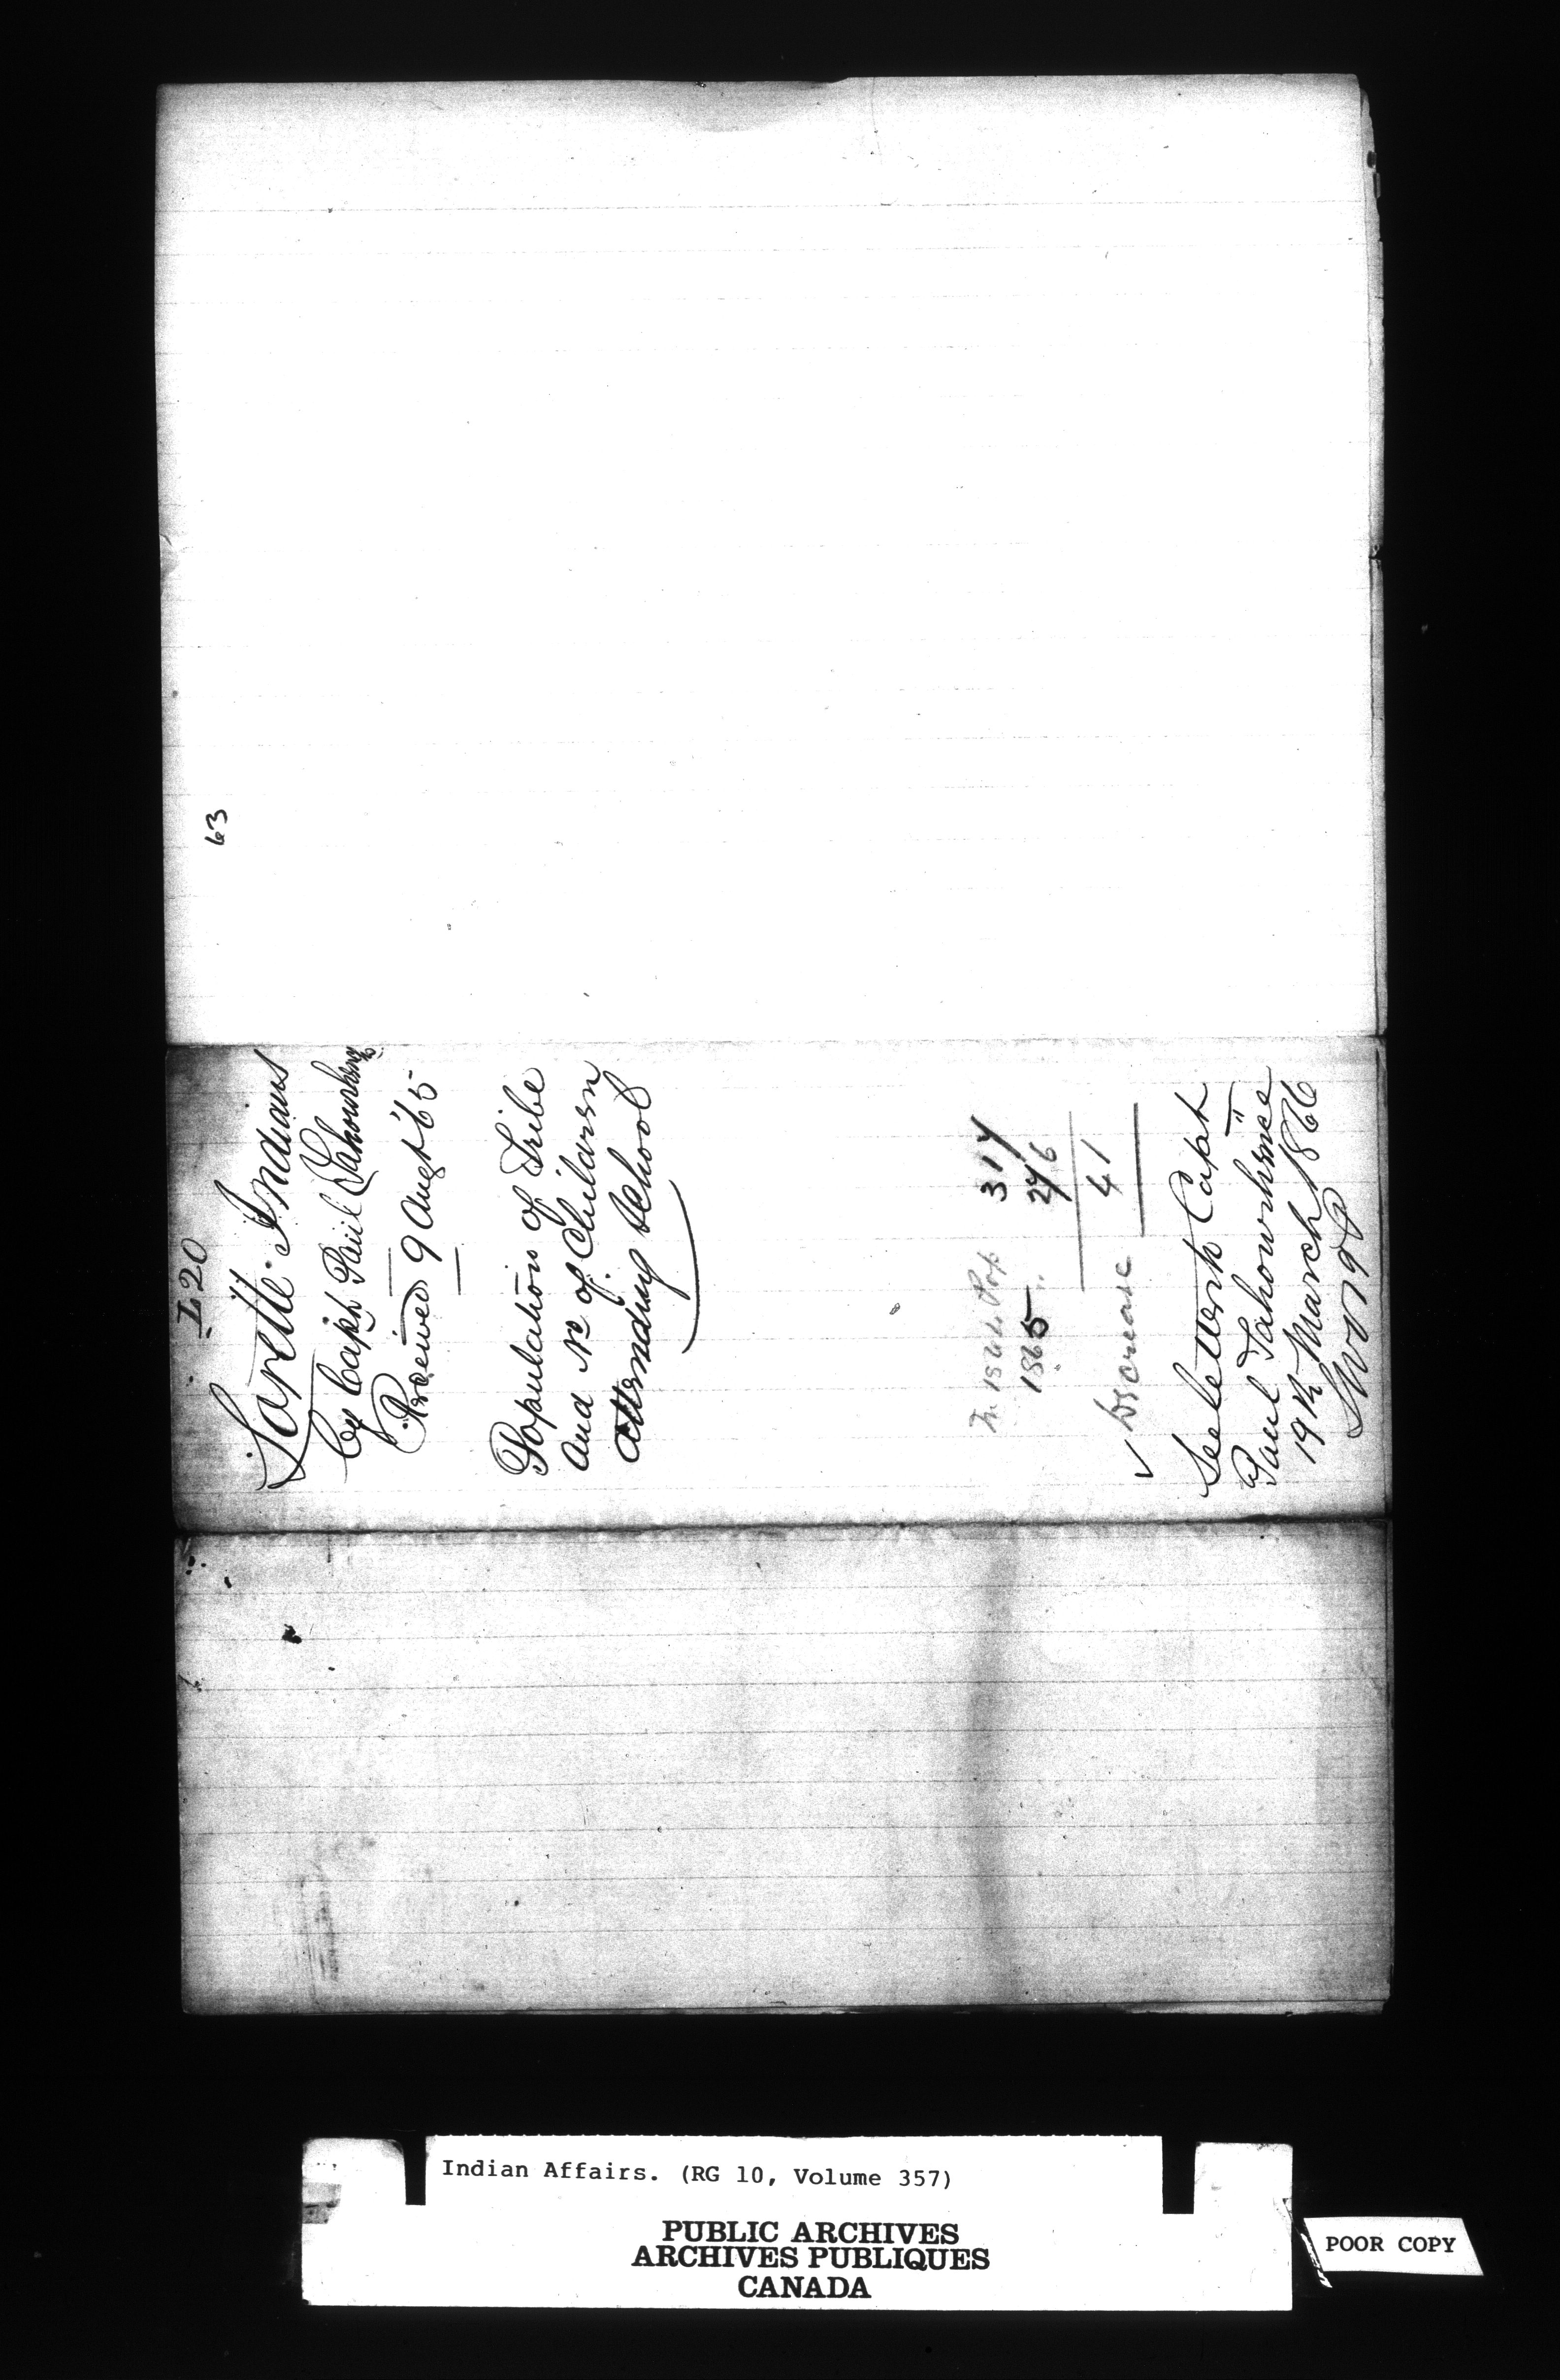 63
L 20
Lorette Indians
by Capt Paul Tahourhenche
Received 9 Augt '65
Population of Tribe
and No of Children
attending School
In 1864 Pop 317
1865 " 276
Decrease 41
See letter to Capt
Paul Tahourhenche
19th March 1866
Indian Affairs. (RG 10, Volume 357)
PUBLIC ARCHIVES
ARCHIVES PUBLIQUES
CANADA
POOR COPY